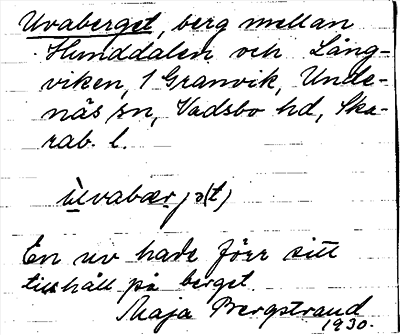 Uvaberget, berg mellan
Hunddalen och Lång-
viken, 1 Granvik, Unde-
näs sn, Vadsbo hd, Ska-
rab. l.
ùvabær ja(t)
En uv hade förr sitt
tillhåll på berget.
Maja Bergstrand
1930.